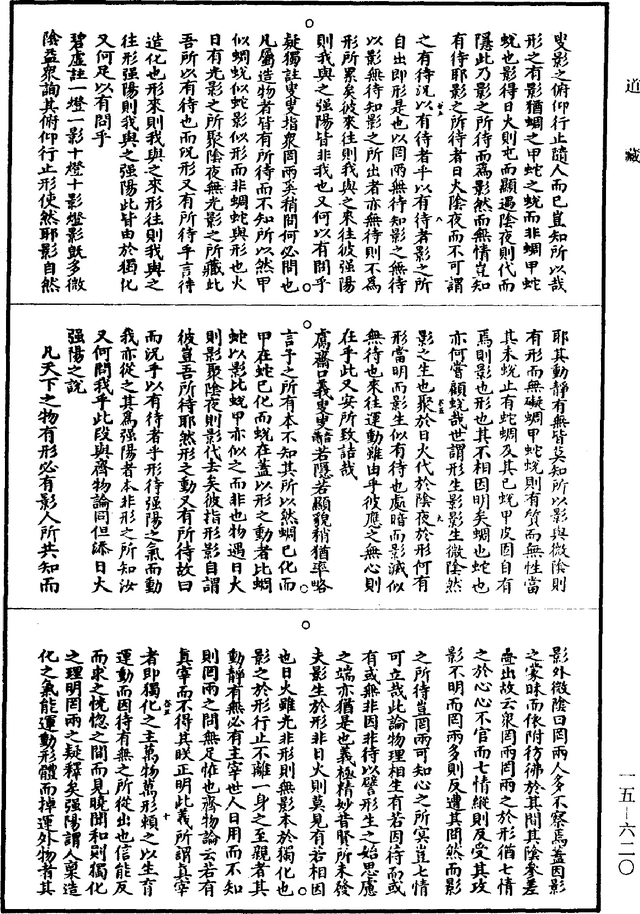 道藏
叟影之俯仰行止隨人而已豈知所以哉
形之有影猶蜩之甲蛇之蛻而非蜩甲蛇
蛻也影得日火則屯而顯遇陰夜則代而
隱此乃影之所待而為影然而無情豈知
有待耶影之所待者日火陰夜而不可謂
之有待況以有待者乎以有待者影之所
自出即形是也以罔兩無待知影之無待
以影無待知影之所出者亦無待則不為
形所累矣彼來往則我與之來往彼強陽
則我與之強陽皆非我也又何以有問乎
疑獨註叟叟指衆罔兩奚稍問何必問也
凡屬造物者皆有所待而不知所以然甲
似蜩蛻似蛇影似形而非蜩蛇與形也火
日有光影之所聚陰夜無光影之所藏此
吾所以有待也而況形又有所待乎言待
造化也形來則我與之來形往則我與之
往形強陽則我與之強陽此皆由於獨化
又何足以有問乎
碧虛註一燈一影十燈十影燈影旣多微
陰益衆詢其俯仰行止形使然耶影自然
耶其動靜有無皆莫知所以影與微陰則
有形而無礙蜩甲蛇蛻則有質而無性當
其未蛻止有蛇蜩及其已蛻甲皮固自有
焉則影也形也其不相因明矣蜩也蛇也
亦何嘗顧蛻哉世謂形生影影生微陰然
影之生也聚於日火代於陰夜於形何有
形當明而影生似有待也處暗而影滅似
無待也來往運動雖由乎彼應之無心則
在乎此又安所致詰哉
鬳齋口義叟叟若隱若顯貌稍猶率略
言予之所有本不知其所以然蜩已化而
甲在蛇已化而蛻在蓋以形之動者比蜩
蛇以影比蛻甲亦似之而非也物遇日火
則影聚陰夜則影代去矣彼指形影自謂
彼豈吾所待耶然形之動又有所待故曰
而況乎以有待者乎形待強陽之氣而動
我亦從之其為強陽者本非形之所知汝
又何問我乎此段與齊物論同但添日火
強陽之說
凡天下之物有形必有影人所共知而
影外微陰曰罔兩人多不察焉蓋因影
之蒙昧而依附彷彿於其間其陰參差
疊出故云衆罔兩罔兩之於形猶七情
之於心心不官而七情縱則反受其攻
影不明而罔兩多則反遭其問然而影
之所待豈罔兩可知心之所冥豈七情
可立哉此論物理相生有若因待而或
有或無非因非待以譬形生之始思慮
之端亦猶是也義極精妙昔賢所未發
夫影生於形非日火則莫見有若相因
也日火雖光非形則無影本於獨化也
影之於形行止不離一身之至親者其
動靜有無必有主宰世人日用而不知
則罔兩之問無足怪也齊物論云若有
真宰而不得其眹正明此義所謂真宰
者即獨化之主萬物萬形賴之以生育
運動而因待有無之所從出也信能反
而求之恍惚之間而見曉聞和則獨化
之理明罔兩之疑釋矣強陽謂人稟造
化之氣能運動形體而掉運外物者其
一五—六二〇